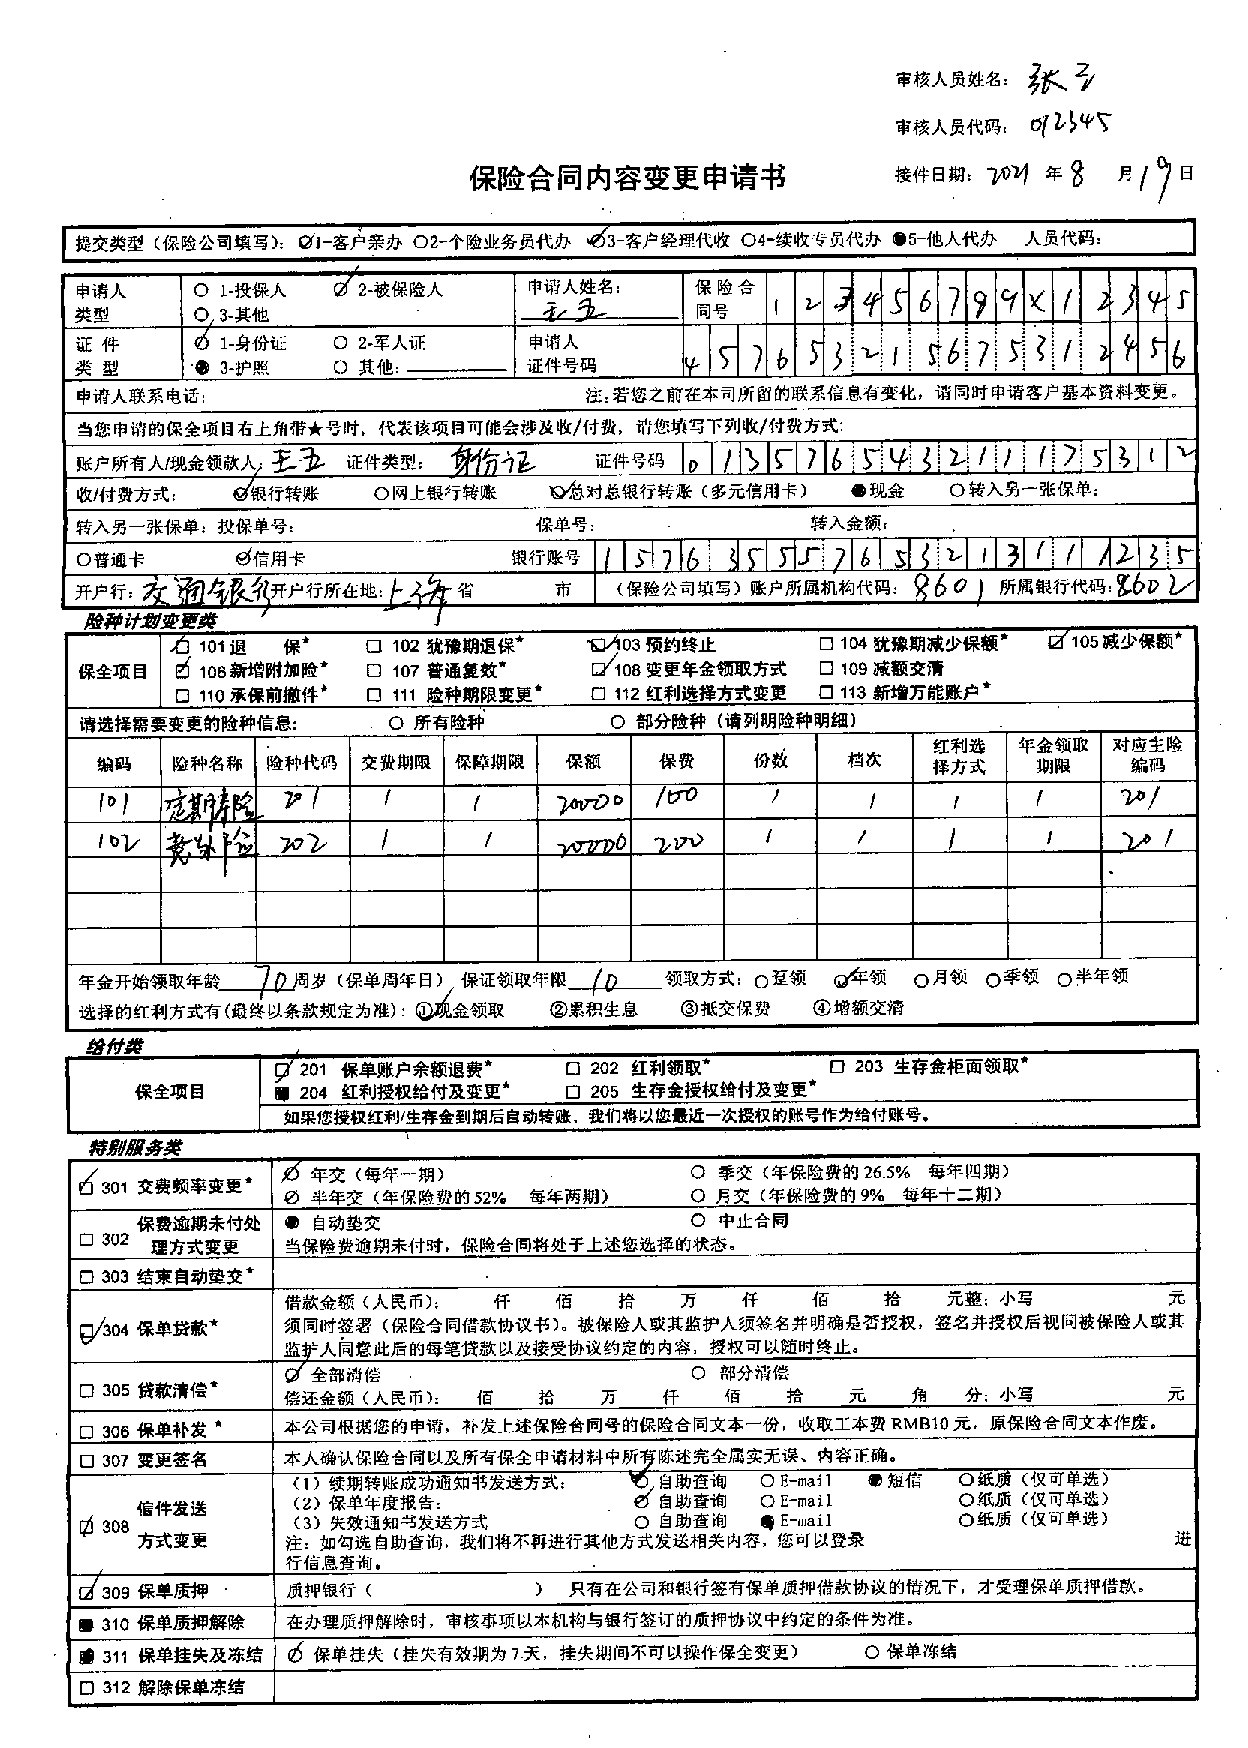 审核人员姓名：张三
审核人员代码：012345
保险合同内容变更申请书
接件日期：2021年8月19日
提交类型（保险公司填写）：○1-客户亲办 ○2-个险业务员代办 ○3-客户经理代收 ○4-续收专员代办 ●5-他人代办 人员代码：
申请人类型 ○ 1-投保人 ○ 2-被保险人 ○ 3-其他
申请人姓名：王五
保险合同号 123456789X12345
证件类型 ○ 1-身份证 ○ 2-军人证 ● 3-护照 ○ 其他：
申请人证件号码 457653215675312456
申请人联系电话： 注：若您之前在本司所留的联系信息有变化，请同时申请客户基本资料变更。
当您申请的保全项目右上角带★号时，代表该项目可能会涉及收/付费，请您填写下列收/付费方式：
账户所有人/现金领款人：王五 证件类型：身份证 证件号码 013576543211175312
收/付费方式： ○银行转账 ○网上银行转账 ○总对总银行转账（多元信用卡） ●现金 ○转入另一张保单：
转入另一张保单：投保单号： 保单号： 转入金额：
○普通卡 ○信用卡 银行账号 157635557653213111235
开户行：交通银行 开户行所在地：上海 省 市 （保险公司填写）账户所属机构代码：8601 所属银行代码：8602
险种计划变更类
保全项目
□ 101退 保* □ 102 犹豫期退保* □103 预约终止 □ 104 犹豫期减少保额* □ 105减少保额*
□ 106新增附加险* □ 107 普通复效* □ 108 变更年金领取方式 □ 109 减额交清
□ 110 承保前撤件* □ 111 险种期限变更* □ 112 红利选择方式变更 □ 113 新增万能账户*
请选择需要变更的险种信息： ○ 所有险种 ○ 部分险种（请列明险种明细）
编码 险种名称 险种代码 交费期限 保障期限 保额 保费 份数 档次 红利选择方式 年金领取期限 对应主险编码
101 定期寿险 201 1 1 20000 100 1 1 1 1 201
102 意外险 202 1 1 20000 200 1 1 1 1 201
年金开始领取年龄70周岁（保单周年日） 保证领取年限10 领取方式：○趸领 ○年领 ○月领 ○季领 ○半年领
选择的红利方式有（最终以条款规定为准）：①现金领取 ②累积生息 ③抵交保费 ④增额交清
给付类
保全项目
□ 201 保单账户余额退费* □ 202 红利领取* □ 203 生存金柜面领取*
■ 204 红利授权给付及变更* □ 205 生存金授权给付及变更*
如果您授权红利/生存金到期后自动转账，我们将以您最近一次授权的账号作为给付账号。
特别服务类
□ 301 交费频率变更* ○ 年交（每年一期） ○ 季交（年保险费的26.5% 每年四期）
○ 半年交（年保险费的52% 每年两期） ○ 月交（年保险费的9% 每年十二期）
□ 302 保费逾期未付处理方式变更 ● 自动垫交 ○ 中止合同
当保险费逾期未付时，保险合同将处于上述您选择的状态。
□ 303 结束自动垫交*
□304 保单贷款* 借款金额（人民币）： 仟 佰 拾 万 仟 佰 拾 元整；小写 元
须同时签署（保险合同借款协议书）。被保险人或其监护人须签名并明确是否授权，签名并授权后视同被保险人或其
监护人同意此后的每笔贷款以及接受协议约定的内容，授权可以随时终止。
□ 305 贷款清偿* ○ 全部清偿 ○ 部分清偿
偿还金额（人民币）： 佰 拾 万 仟 佰 拾 元 角 分；小写 元
□ 306 保单补发* 本公司根据您的申请，补发上述保险合同号的保险合同文本一份，收取工本费 RMB10 元，原保险合同文本作废。
□ 307 变更签名 本人确认保险合同以及所有保全申请材料中所有陈述完全属实无误、内容正确。
□ 308 信件发送方式变更 （1）续期转账成功通知书发送方式： ○ 自助查询 ○ E-mail ●短信 ○纸质（仅可单选）
（2）保单年度报告： ○ 自助查询 ○ E-mail ○纸质（仅可单选）
（3）失效通知书发送方式 ○ 自助查询 ● E-mail ○纸质（仅可单选）
注：如勾选自助查询，我们将不再进行其他方式发送相关内容，您可以登录 进
行信息查询。
□ 309 保单质押 质押银行（ ） 只有在公司和银行签有保单质押借款协议的情况下，才受理保单质押借款。
■ 310 保单质押解除 在办理质押解除时，审核事项以本机构与银行签订的质押协议中约定的条件为准。
■ 311 保单挂失及冻结 ○ 保单挂失（挂失有效期为7天，挂失期间不可以操作保全变更） ○ 保单冻结
□ 312 解除保单冻结